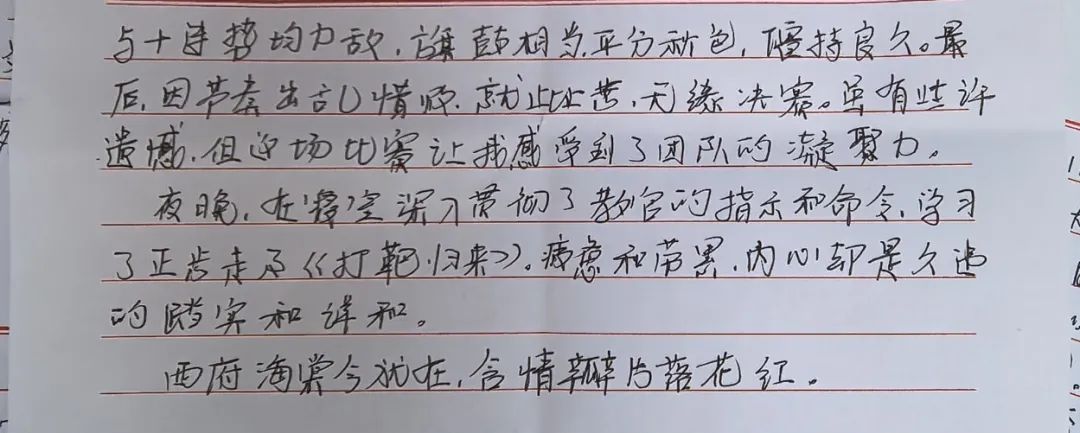 与十连势均力敌，旗鼓相当，平分秋色，僵持良久。最
后，因节奏出乱惜败，就此止步，无缘决赛。虽有些许
遗憾，但这场比赛让我感受到了团队的凝聚力。
夜晚，在寝室深习贯彻了教官的指示和命令，学习
了正步走及《打靶归来》。疲惫和劳累，内心却是久违
的踏实和祥和。
西府海棠今犹在，含情瓣片落花红。